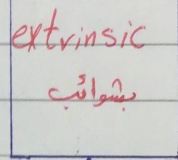 extrinsic
بشوائب